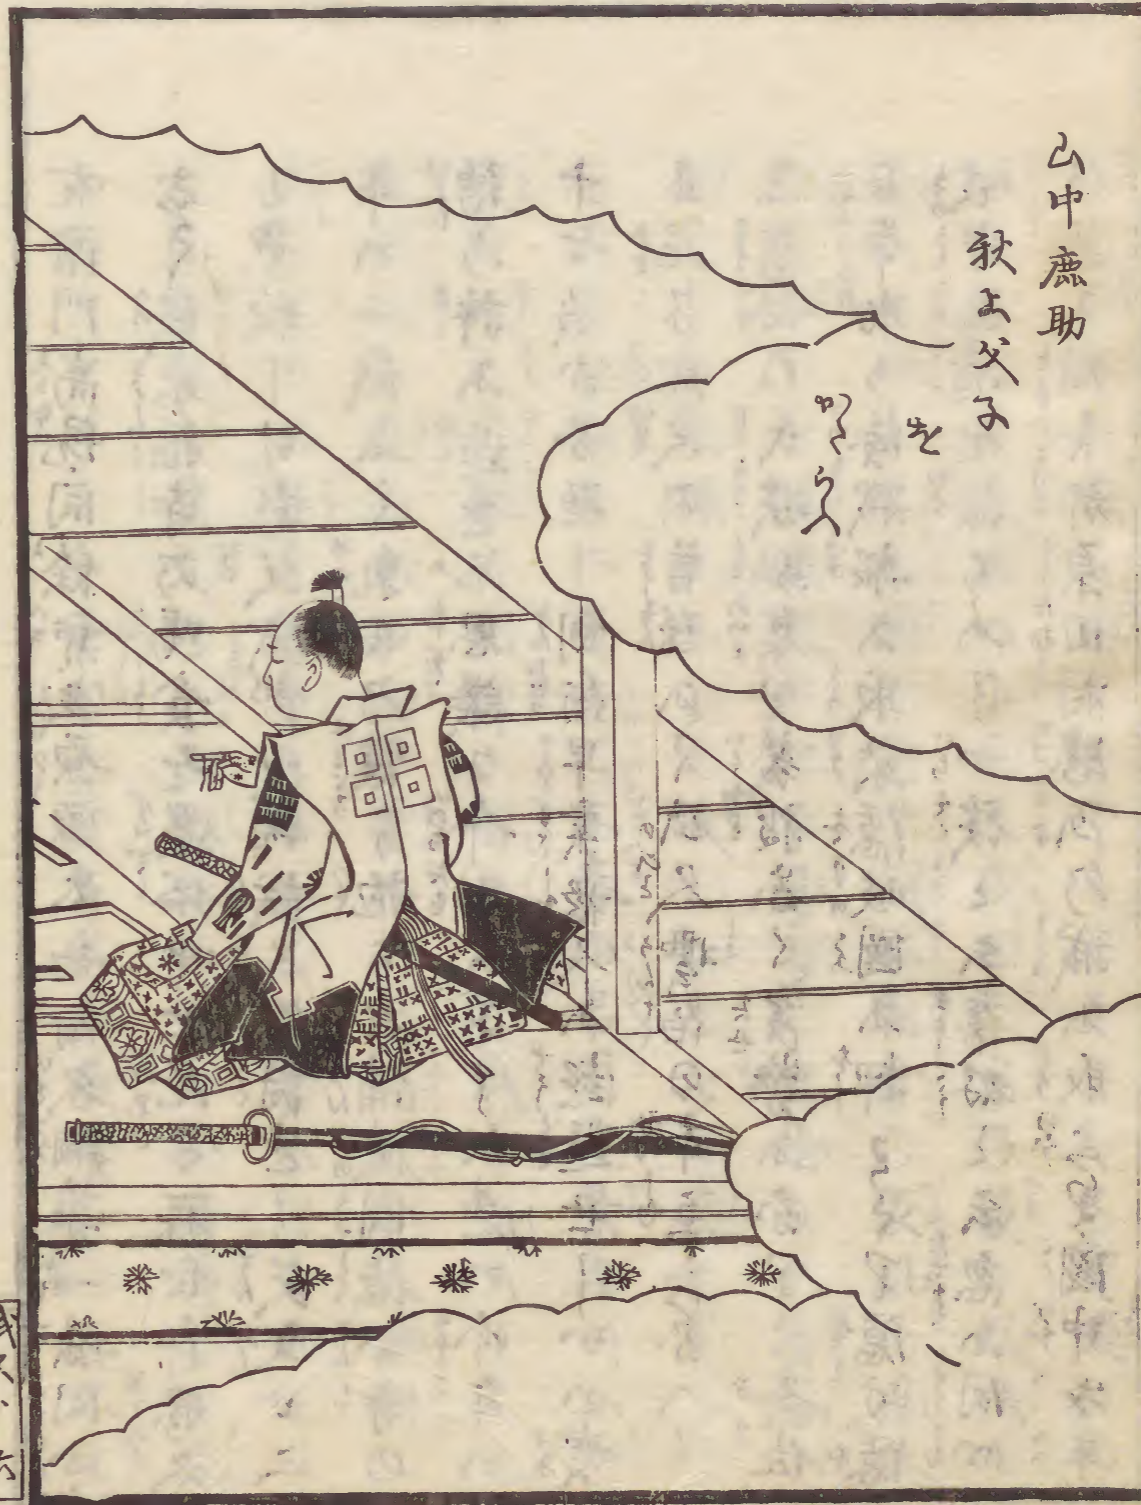 山中鹿助
秋上父子
を
かたらふ